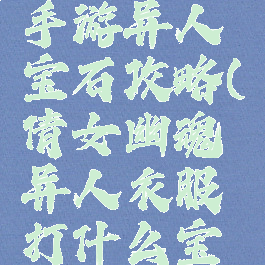 手游异人
宝石攻略(
倩女幽魂
异人衣服
打什么宝